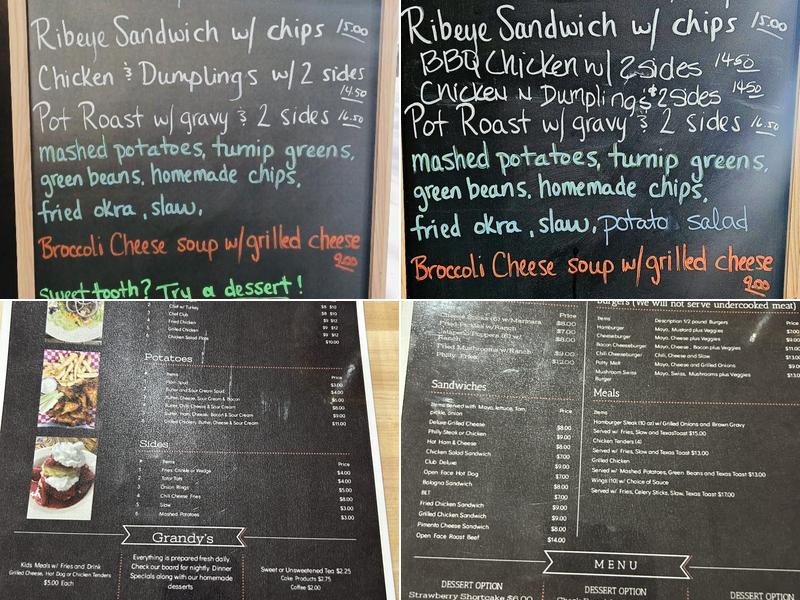 Ribeye Sandwich w/ chips 15.00
Chicken & Dumplings w/2 sides
14.50
Pot Roast w/ gravy & 2 sides 16.50
mashed potatoes, turnip greens,
green beans, homemade chips,
fried okra, slaw,
Broccoli Cheese soup w/grilled cheese
9.00
Sweet tooth? Try a dessert!
Ribeye Sandwich w/ chips 15.00
BBQ Chicken w/ 2 sides 14.50
Chicken N Dumplings & 2 sides 14.50
Pot Roast w/ gravy & 2 sides 16.50
mashed potatoes, turnip greens,
green beans, homemade chips,
fried okra, slaw, potato salad
Broccoli Cheese soup w/grilled cheese
9.00
Chef w/ Turkey
Chef Club
Fried Chicken
Grilled Chicken
Chicken Salad Plate $10.00
Potatoes
Items Price
Plain Spud $3.00
Butter and Sour Cream Spud $4.00
Butter, Cheese, Sour Cream & Bacon
Butter, Chili Cheese & Sour Cream $8.00
Butter, Ham, Cheese, Bacon & Sour Cream $9.00
Grilled Chicken, Butter, Cheese & Sour Cream $11.00
Sides
Items Price
Fries Crinkle or Wedge $4.00
Tator Tots $4.00
Onion Rings $5.00
Chili Cheese Fries $8.00
Slaw $3.00
Mashed Potatoes $3.00
Grandy's
Kids Meals w/ Fries and Drink
Grilled Cheese, Hot Dog or Chicken Tenders
$5.00 Each
Everything is prepared fresh daily.
Check our board for nightly Dinner
Specials along with our homemade
desserts
Sweet or Unsweetened Tea $2.25
Coke Products $2.75
Coffee $2.00
Price
Cheese Sticks (6) w/Marinara $8.00
Fried Pickles w/Ranch $7.00
Ranch $8.00
Fried Mushrooms w/Ranch $9.00
Philly Fries $12.00
Sandwiches
Items served with Mayo, lettuce, Tom, Price
pickle, onion
Deluxe Grilled Cheese $8.00
Philly Steak or Chicken $9.00
Hot Ham & Cheese $8.00
Chicken Salad Sandwich $7.00
Club Deluxe $9.00
Open Face Hot Dog $7.00
Bologna Sandwich $8.00
BLT $7.00
Fried Chicken Sandwich $9.00
Grilled Chicken Sandwich $9.00
Pimento Cheese Sandwich $8.00
Open Face Roast Beef $14.00
Burgers (We will not serve undercooked meat)
Items Description 1/2 pound Burgers
Hamburger Mayo, Mustard plus Veggies
Cheeseburger Mayo, Cheese plus Veggies
Bacon Cheeseburger Mayo, Cheese, Bacon plus Veggies
Chili Cheeseburger Chili, Cheese and Slaw
Patty Melt Mayo, Cheese and Grilled Onions
Mushroom Swiss Mayo, Swiss, Mushrooms plus Veggies
Burger
Meals
Items
Hamburger Steak (10 oz) w/ Grilled Onions and Brown Gravy
Served w/ Fries, Slaw and Texas Toast $15.00
Chicken Tenders (4)
Served w/ Fries, Slaw and Texas Toast $13.00
Grilled Chicken
Served w/ Mashed Potatoes, Green Beans and Texas Toast $13.00
Wings (10) w/ Choice of Sauce
Served w/ Fries, Celery Sticks, Slaw, Texas Toast $17.00
MENU
DESSERT OPTION
Strawberry Shortcake $6.00
DESSERT OPTION
DESSERT OPTION